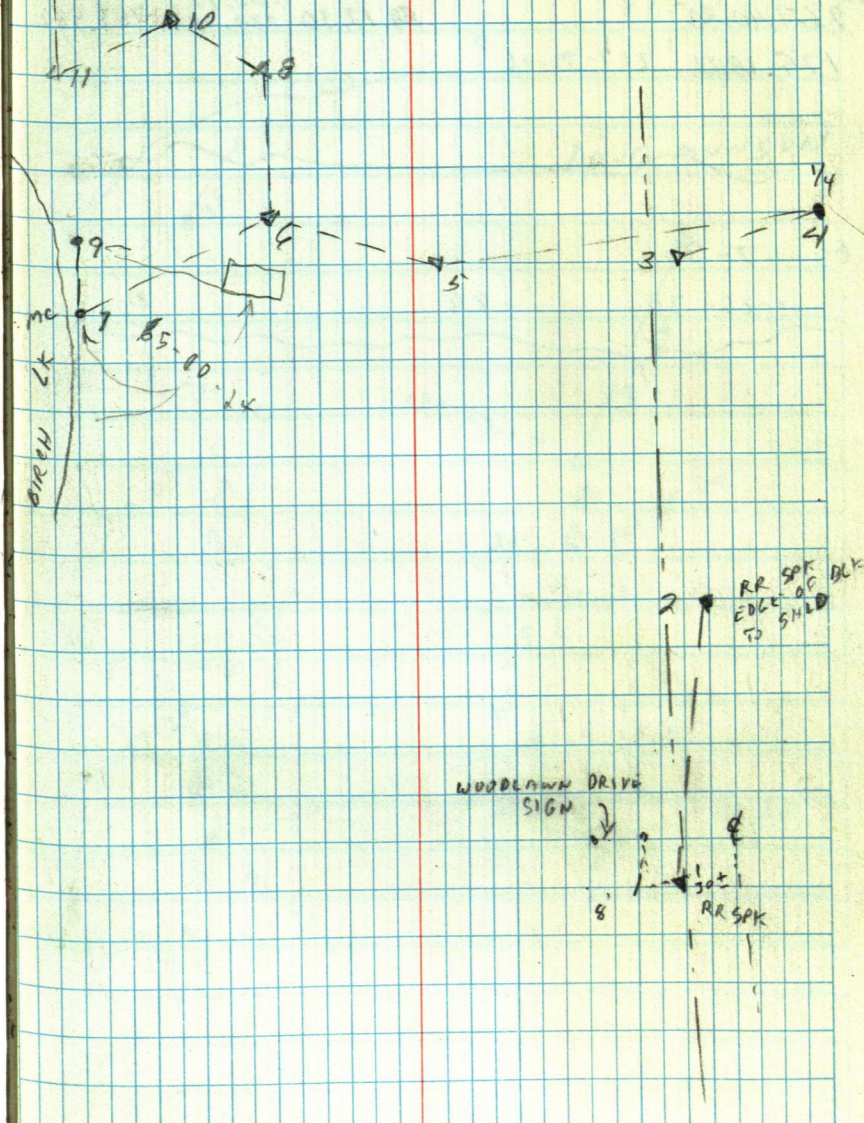 10
11
8
1/4
4
6
9
3
5
MC 7
BIRCH LK
2
RR SPK
EDGE OF BLK
TO SHLD
WOODLAWN DRIVE
SIGN
1
30±
8'
RR SPK